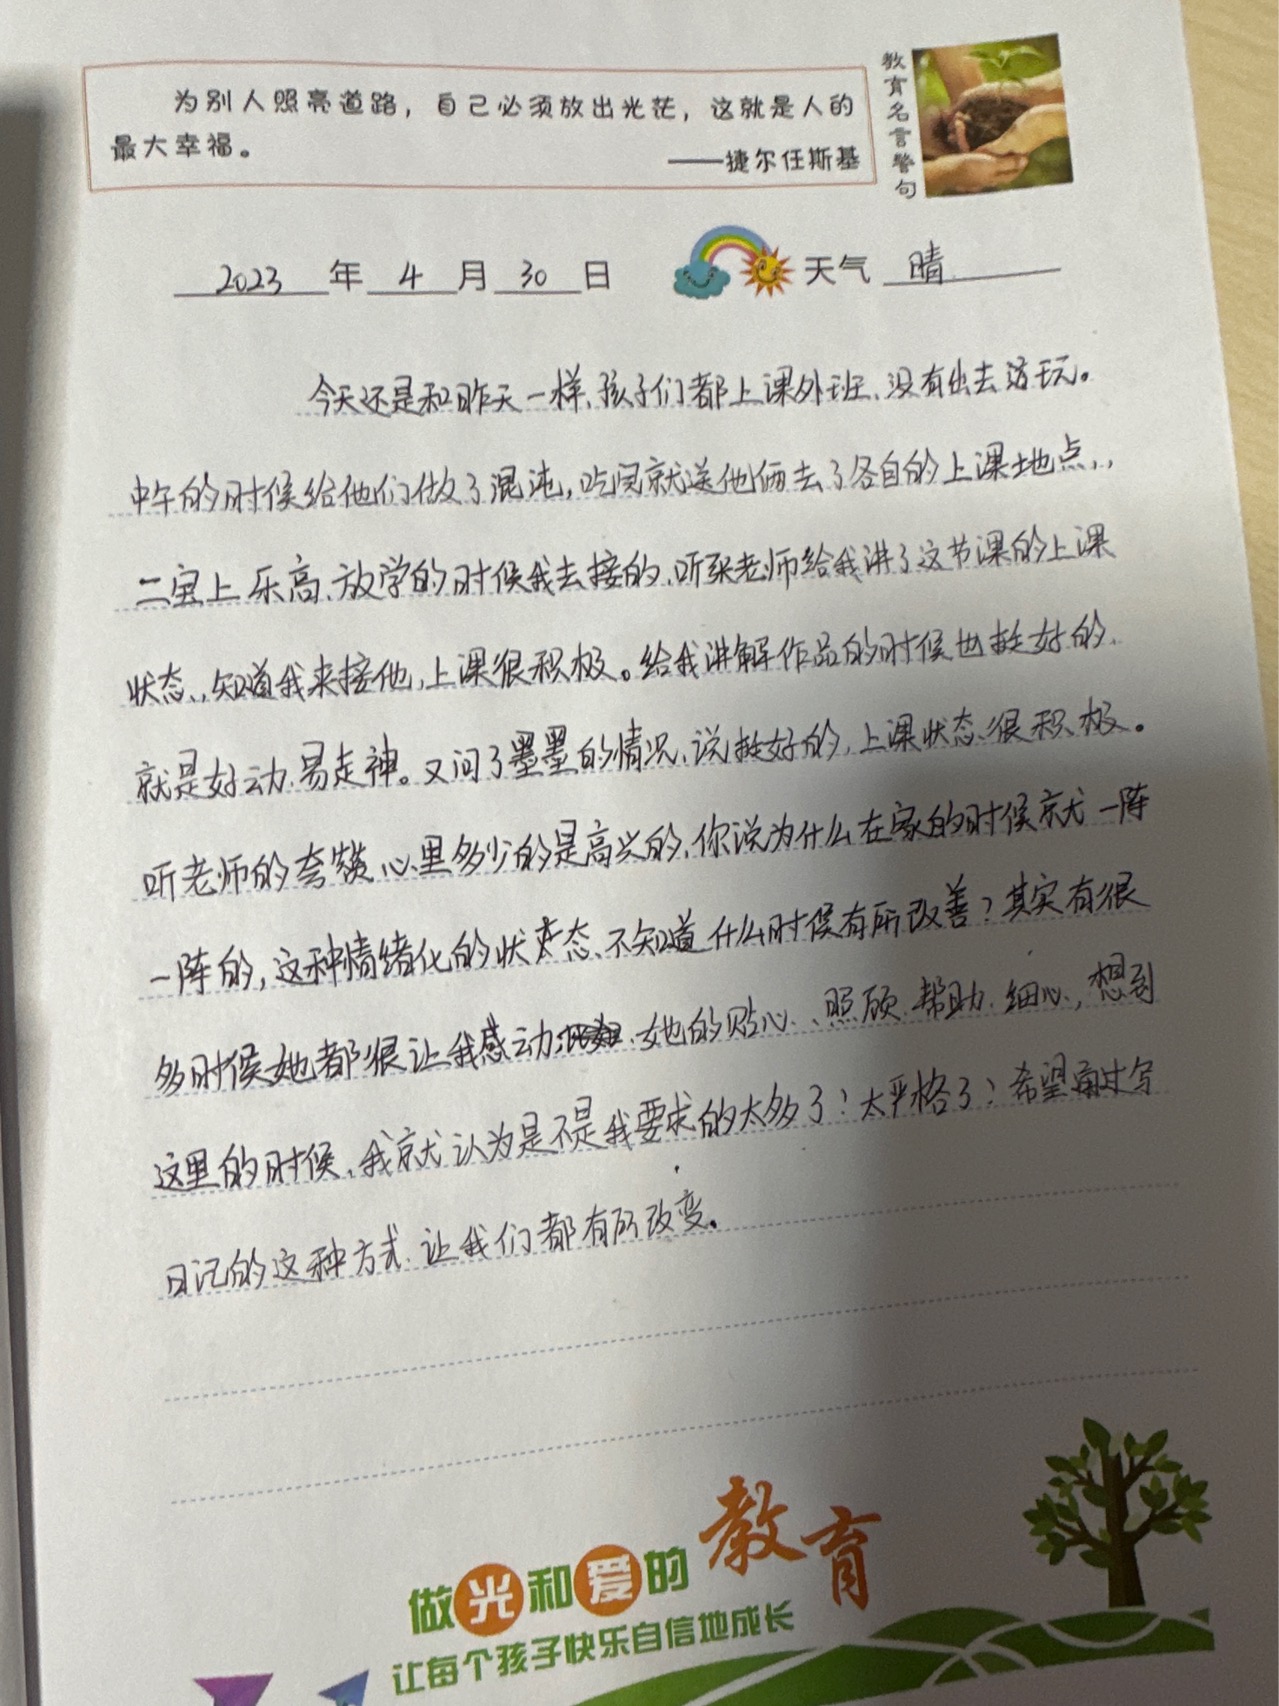 为别人照亮道路，自己必须放出光茫，这就是人的
最大幸福。
——捷尔任斯基
教育名言警句
2023 年 4 月 30 日 天气 晴
今天还是和昨天一样、孩子们都上课外班、没有出去游玩。
中午的时候给他们做了混沌，吃完就送他俩去了各自的上课地点，
二宝上乐高、放学的时候我去接的、听张老师给我讲了这节课的上课
状态、知道我来接他，上课很积极。给我讲解作品的时候也挺好的、
就是好动、易走神。又问了墨墨的情况、说挺好的、上课状态很积极。
听老师的夸赞心里多少的是高兴的、你说为什么在家的时候就一阵
一阵的，这种情绪化的状态、不知道什么时候有所改善？其实有很
多时候她都很让我感动、她的贴心、照顾、帮助、细心，想到
这里的时候、我就认为是不是我要求的太多了！太严格了！希望通过写
日记的这种方式、让我们都有所改变。
做光和爱的教育
让每个孩子快乐自信地成长